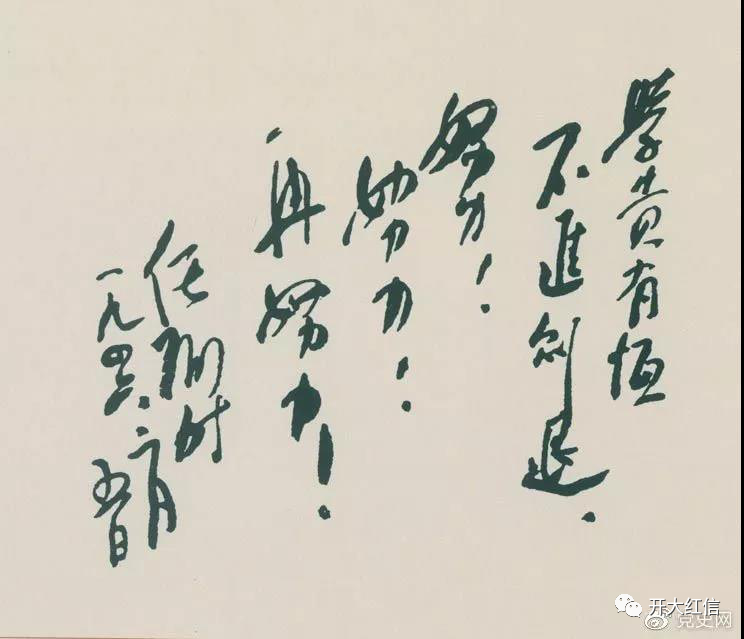 学贵有恒
不進则退.
努力!
努力!
再努力!
任弼时
一九四六.二月
五日
开大红信
党史网